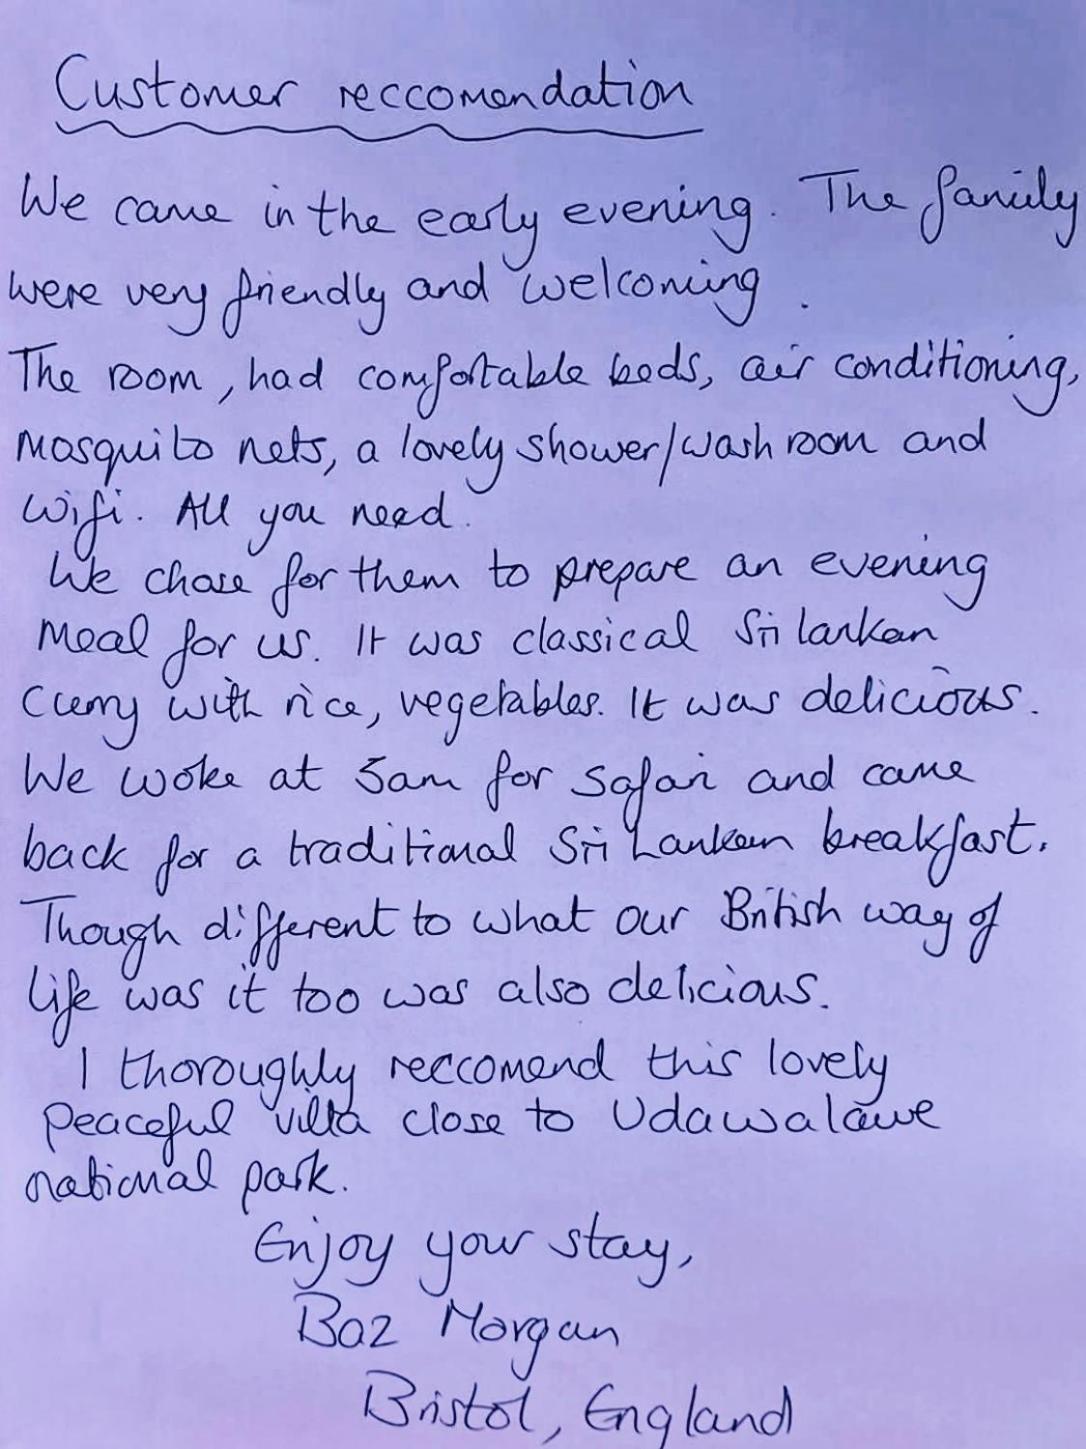 Customer reccomendation
We came in the early evening. The family
were very friendly and welcoming.
The room, had comfortable beds, air conditioning,
Mosquito nets, a lovely shower/wash room and
wifi. All you need.
We chose for them to prepare an evening
Meal for us. It was classical Sri lankan
Curry with rice, vegetables. It was delicious.
We woke at 5am for safari and came
back for a traditional Sri Lankan breakfast.
Though different to what our British way of
life was it too was also delicious.
I thoroughly reccomend this lovely
Peaceful villa close to Udawalawe
national park.
Enjoy your stay,
Baz Morgan
Bristol, England